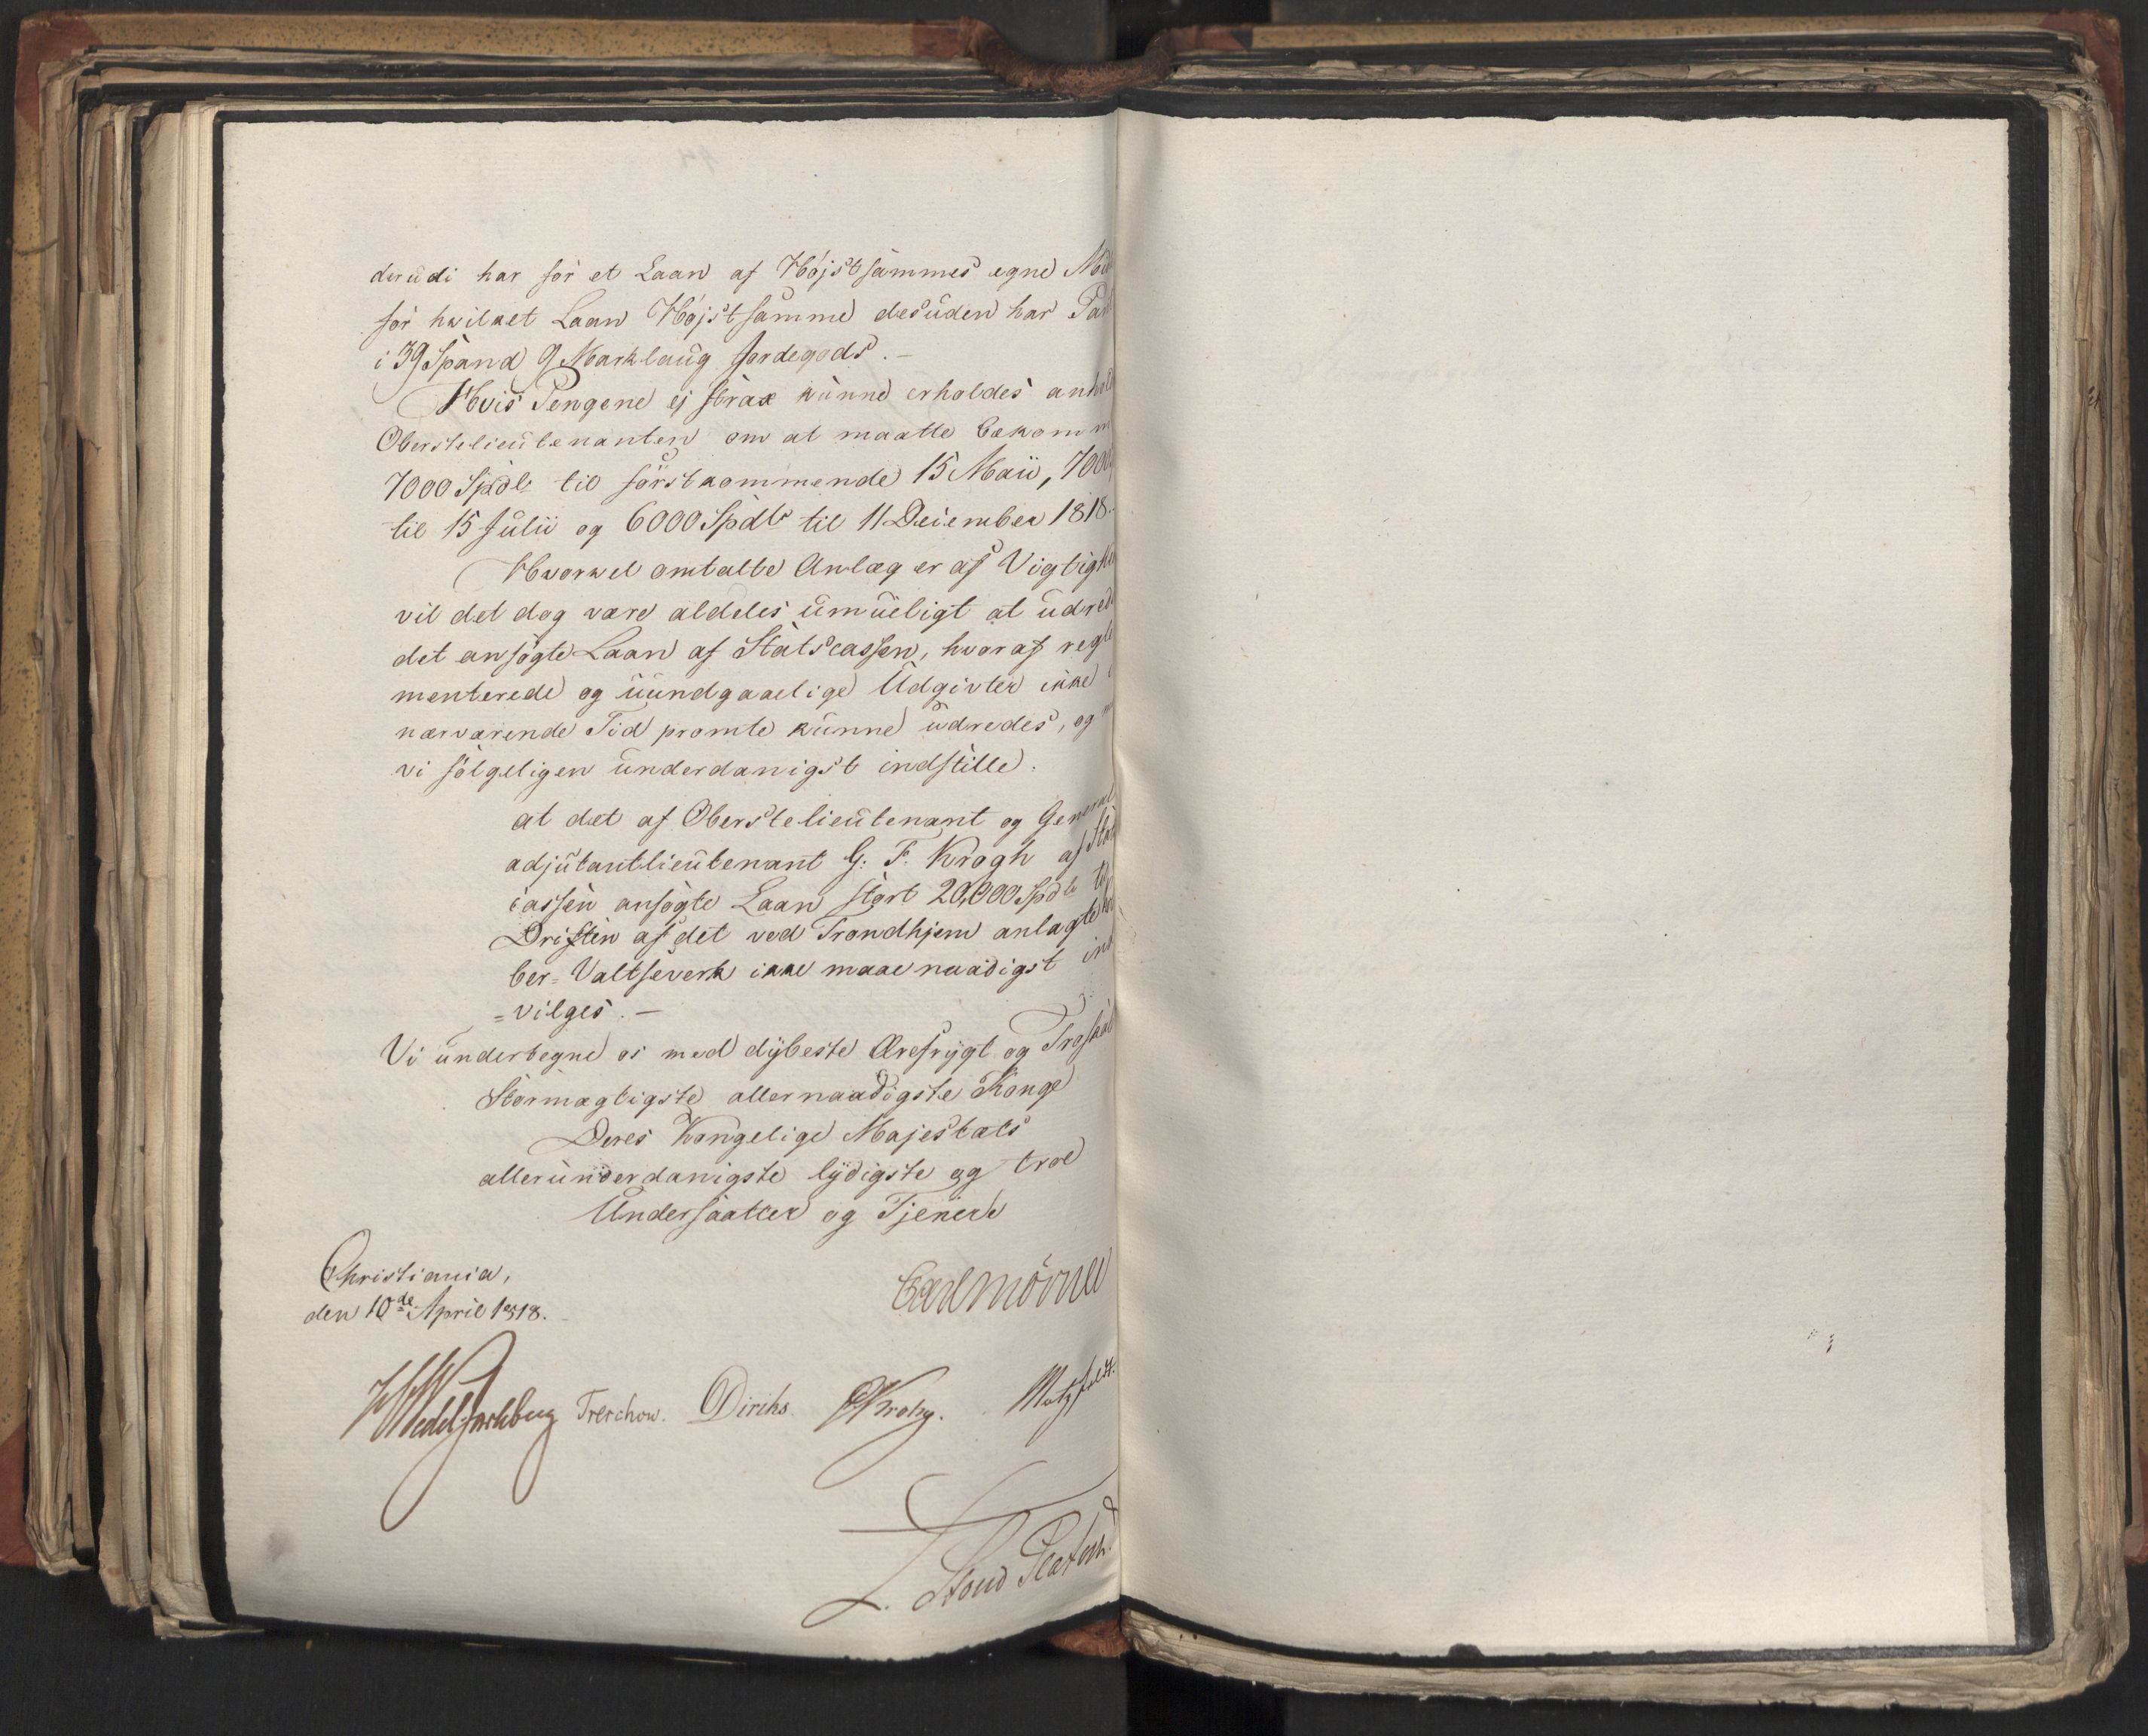 derudi har for et Laan af Højstsammes egne
for hvilket Laan Højstsamme desuden har
i 39 Spand 9 Marklaug Jordegods. –
Hvis Pengene ej strax kunne erholdes
Oberstelieutenanten om at maatte bekomm
7000 Spdlr til förstkommende 15 Maii, 7000
til 15 Julii og 6000 Spdlr til 11 December 1818.
Hvorvel omtalte Anlæg er af Vigtighe
vil det dog være aldeles umueligt at udrede
det ansøgte Laan af Statscassen, hvoraf regle
menterede og uundgaaelige Udgivter ikke i
nærværende Tid promte kunne udredes, og
vi følgeligen underdanigst indstille:
at det af Oberstelieutenant og General
adjutantlieutenant G. F. Krogh af Stats
cassen ansøgte Laan stort 20,000 Spdlr til
Driften af det ved Trondhjem anlagte
ber-Valtseverk ikke maae naadigst
=vilges. –
Vi undertegne os med dybeste Ærefrygt og Troskab
Stormægtigste allernaadigste Konge
Deres Kongelige Majestæts
allerunderdanigste lydigste og troe
Undersaatter og Tjenere
Christiania,
den 10de April 1818.
Carl Mörner
HWedel Jarlsberg Treschow. Diriks. Krohg. Motzfeldt.
L. Stoud Platou